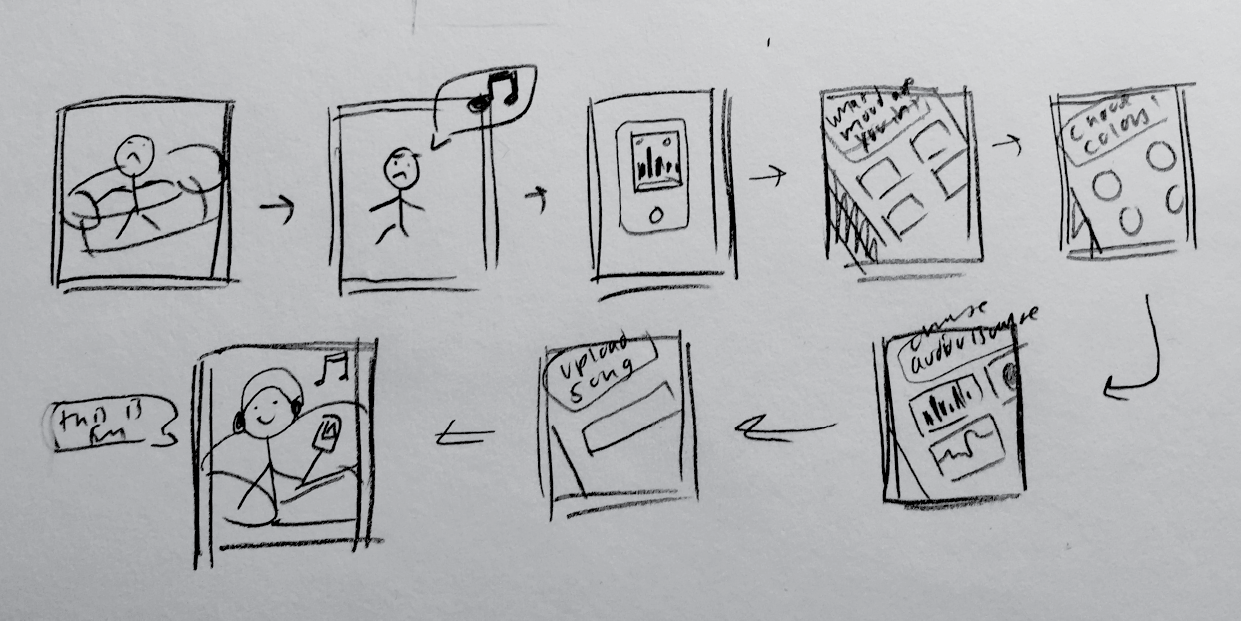 what
mood are
you in?
choose
colors!
choose
audio source
upload
song
this is
fun